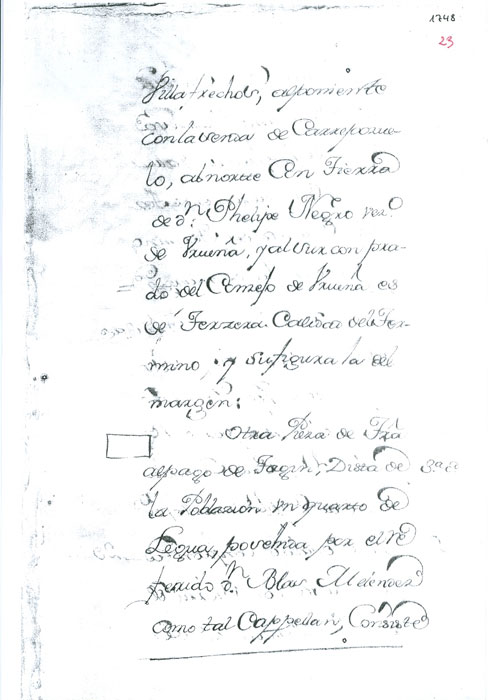 1748
23
Villatrechos, alponiente
con la senda de Carrepozue-
lo, alnorte Con Tierra
de Dn. Phelipe Negro vezo
de Urueña, y al sur con pra-
do del Conzejo de Urueña es
de Terzera Calidad del Ter-
mino, y su figura la del
margen:
Otra Pieza de Tra
alpago de Dista de 3a
la Poblazion un quarto de
Legua, posehida por el re
ferido Dn. Blas Melendez
como tal Cappellan, Consiste